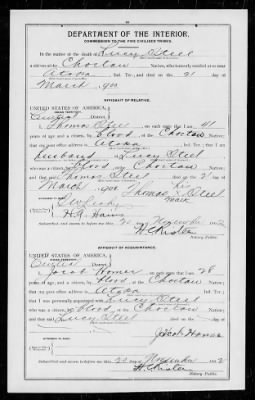 DEPARTMENT OF THE INTERIOR.
COMMISSION TO THE FIVE CIVILIZED TRIBES.
In the matter of the death of Lucy Steel
a citizen of the Choctaw Nation, who formerly resided at or near
Atoka, Ind. Ter., and died on the 21 day of
March, 190
AFFIDAVIT OF RELATIVE.
UNITED STATES OF AMERICA,
Central District.
I, Thomas Steel, on oath state that I am 41
years of age and a citizen, by blood, of the Choctaw Nation;
that my post office address is Atoka, Ind. Ter.; that I am
husband of Lucy Steel
who was a citizen, by blood, of the Choctaw Nation;
and that Lucy Steel died on the 21 day of
March, 190
Thomas x Steel
his
mark
H. A.
Subscribed and sworn to before me this 20 day of November 190
Notary Public.
AFFIDAVIT OF ACQUAINTANCE.
UNITED STATES OF AMERICA,
Central District.
I, Jacob Homer, on oath state that I am 28
years of age, and a citizen by blood of the Choctaw Nation;
that my post office address is Atoka Ind. Ter.;
that I was personally acquainted with Lucy Steel
who was a citizen, by blood, of the Choctaw Nation;
and that Lucy Steel died on the day of
Jacob Homer
Subscribed and sworn to before me this 20 day of November 190
Notary Public.